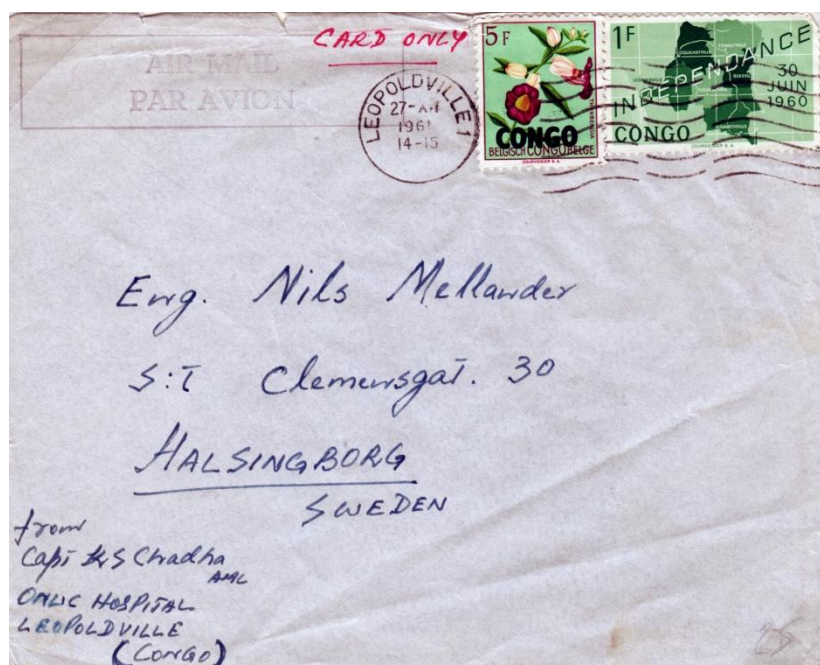 CARD ONLY
AIR MAIL
PAR AVION
LEOPOLDVILLE 1
27-XII
1961
14-15
5F
CONGO
BELGISCH CONGO BELGE
COURVOISIER S.A.
1F
INDEPENDANCE
30
JUIN
1960
CONGO
COURVOISIER S.A.
Eng. Nils Mellander
S:T Clemensgat. 30
HALSINGBORG
SWEDEN
from
Capt K S Chadha
AMC
ONUC HOSPITAL
LEOPOLDVILLE
(CONGO)